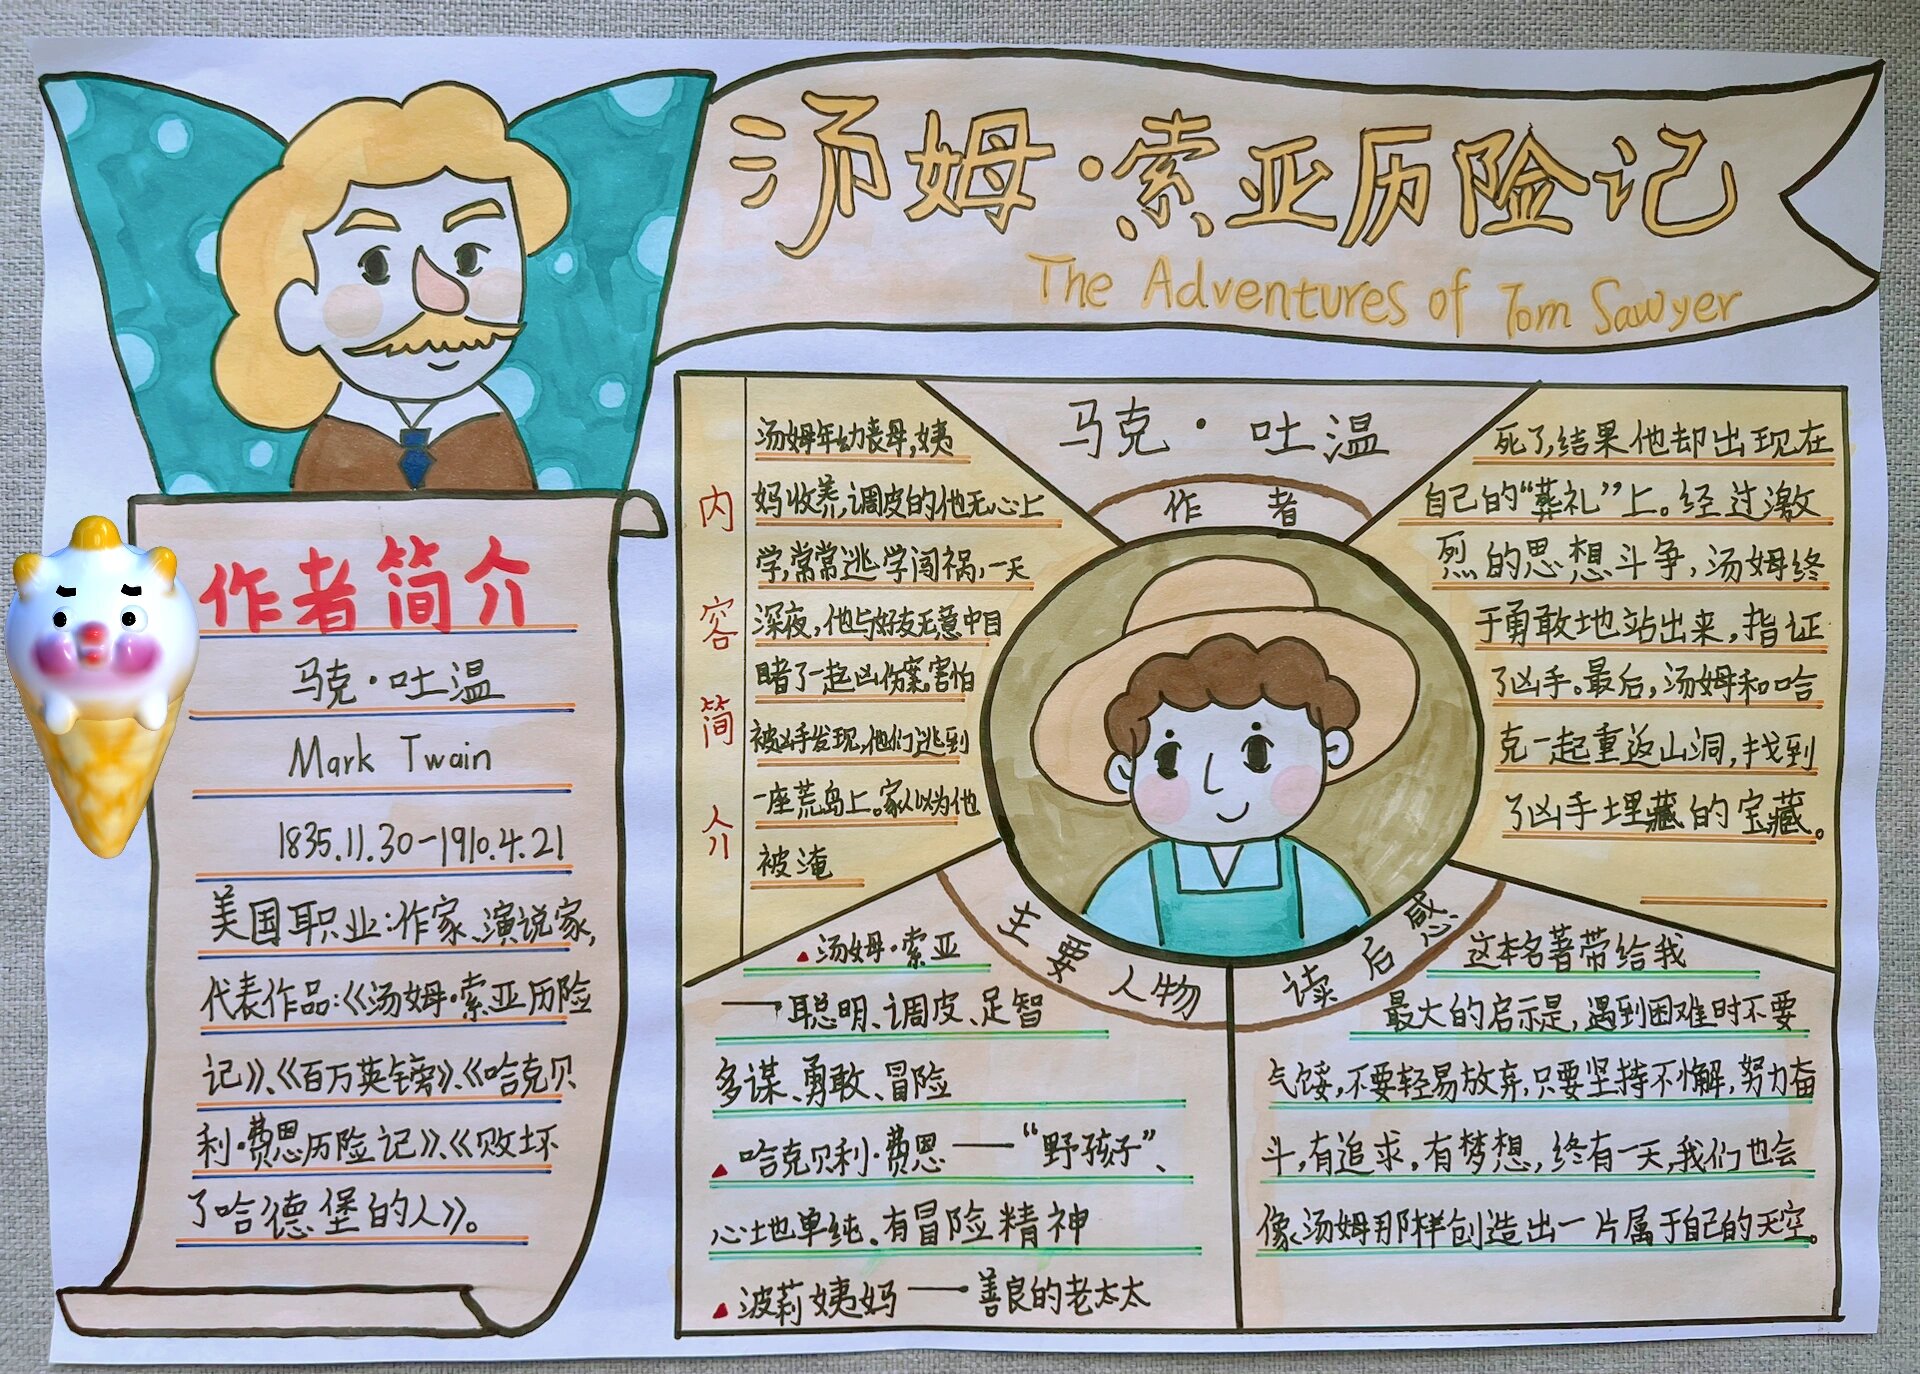 汤姆·索亚历险记
The Adventures of Tom Sawyer
作者简介
马克·吐温
Mark Twain
1835.11.30-1910.4.21
美国职业:作家、演说家,
代表作品:《汤姆·索亚历险
记》、《百万英镑》、《哈克贝
利·费恩历险记》、《败坏
了哈德堡的人》。
马克·吐温
作者
内容简介
汤姆年幼丧母,姨
妈收养,调皮的他无心上
学,常常逃学闯祸,一天
深夜,他与好友无意中目
睹了一起凶伤案,害怕
被凶手发现,他们逃到
一座荒岛上。家人以为他
被淹
死了,结果他却出现在
自己的“葬礼”上。经过激
烈的思想斗争,汤姆终
于勇敢地站出来,指证
了凶手。最后,汤姆和哈
克一起重返山洞,找到
了凶手埋藏的宝藏。
主要人物
汤姆·索亚
——聪明、调皮、足智
多谋、勇敢、冒险
哈克贝利·费恩——“野孩子”、
心地单纯、有冒险精神
波莉姨妈——善良的老太太
读后感
这本名著带给我
最大的启示是,遇到困难时不要
气馁,不要轻易放弃,只要坚持不懈,努力奋
斗,有追求,有梦想,终有一天,我们也会
像汤姆那样创造出一片属于自己的天空。